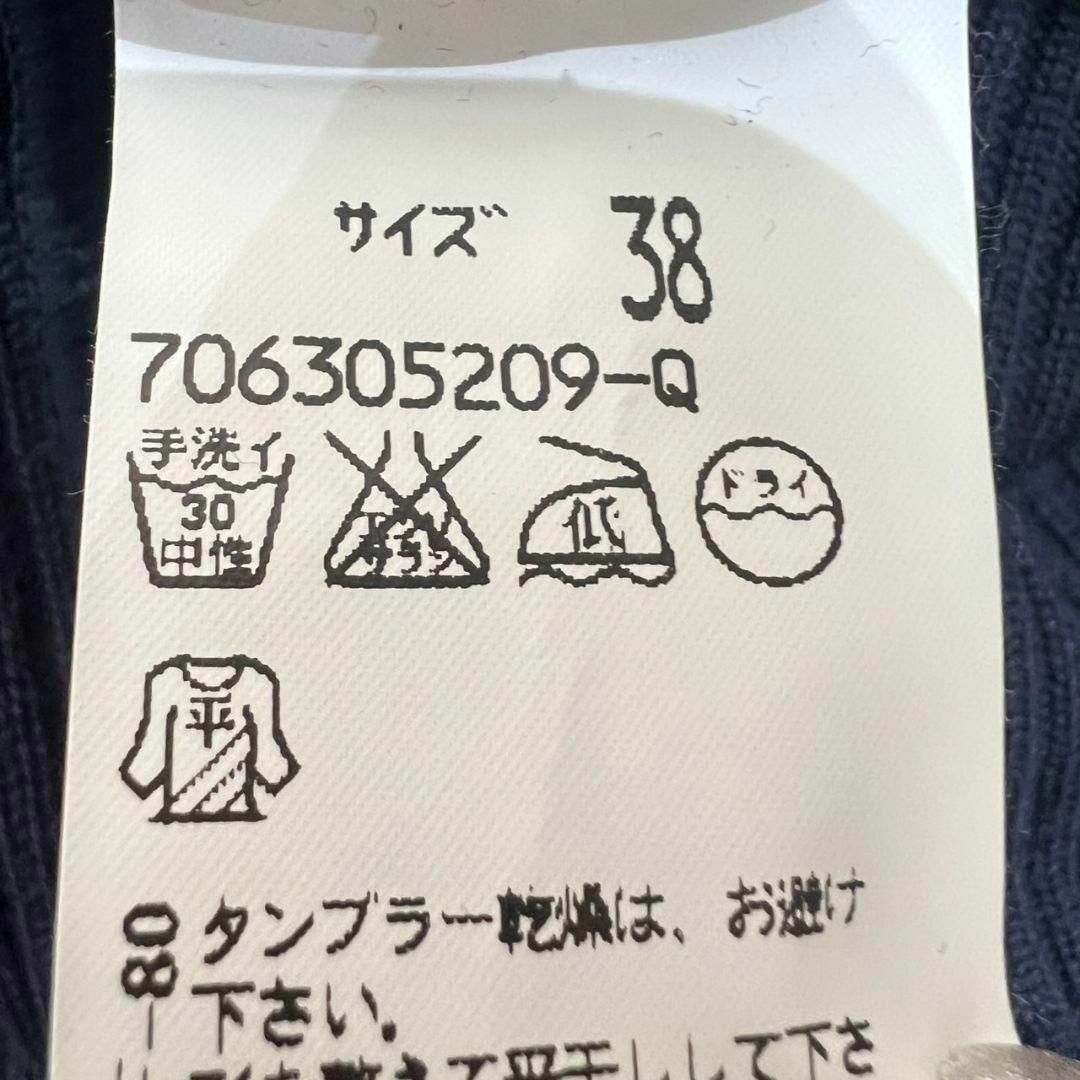 サイズ 38
706305209-Q
手洗イ
30
中性
低
ドライ
平
タンブラー乾燥は、お避け
下さい。
形を整えて平干しして下さ
08-